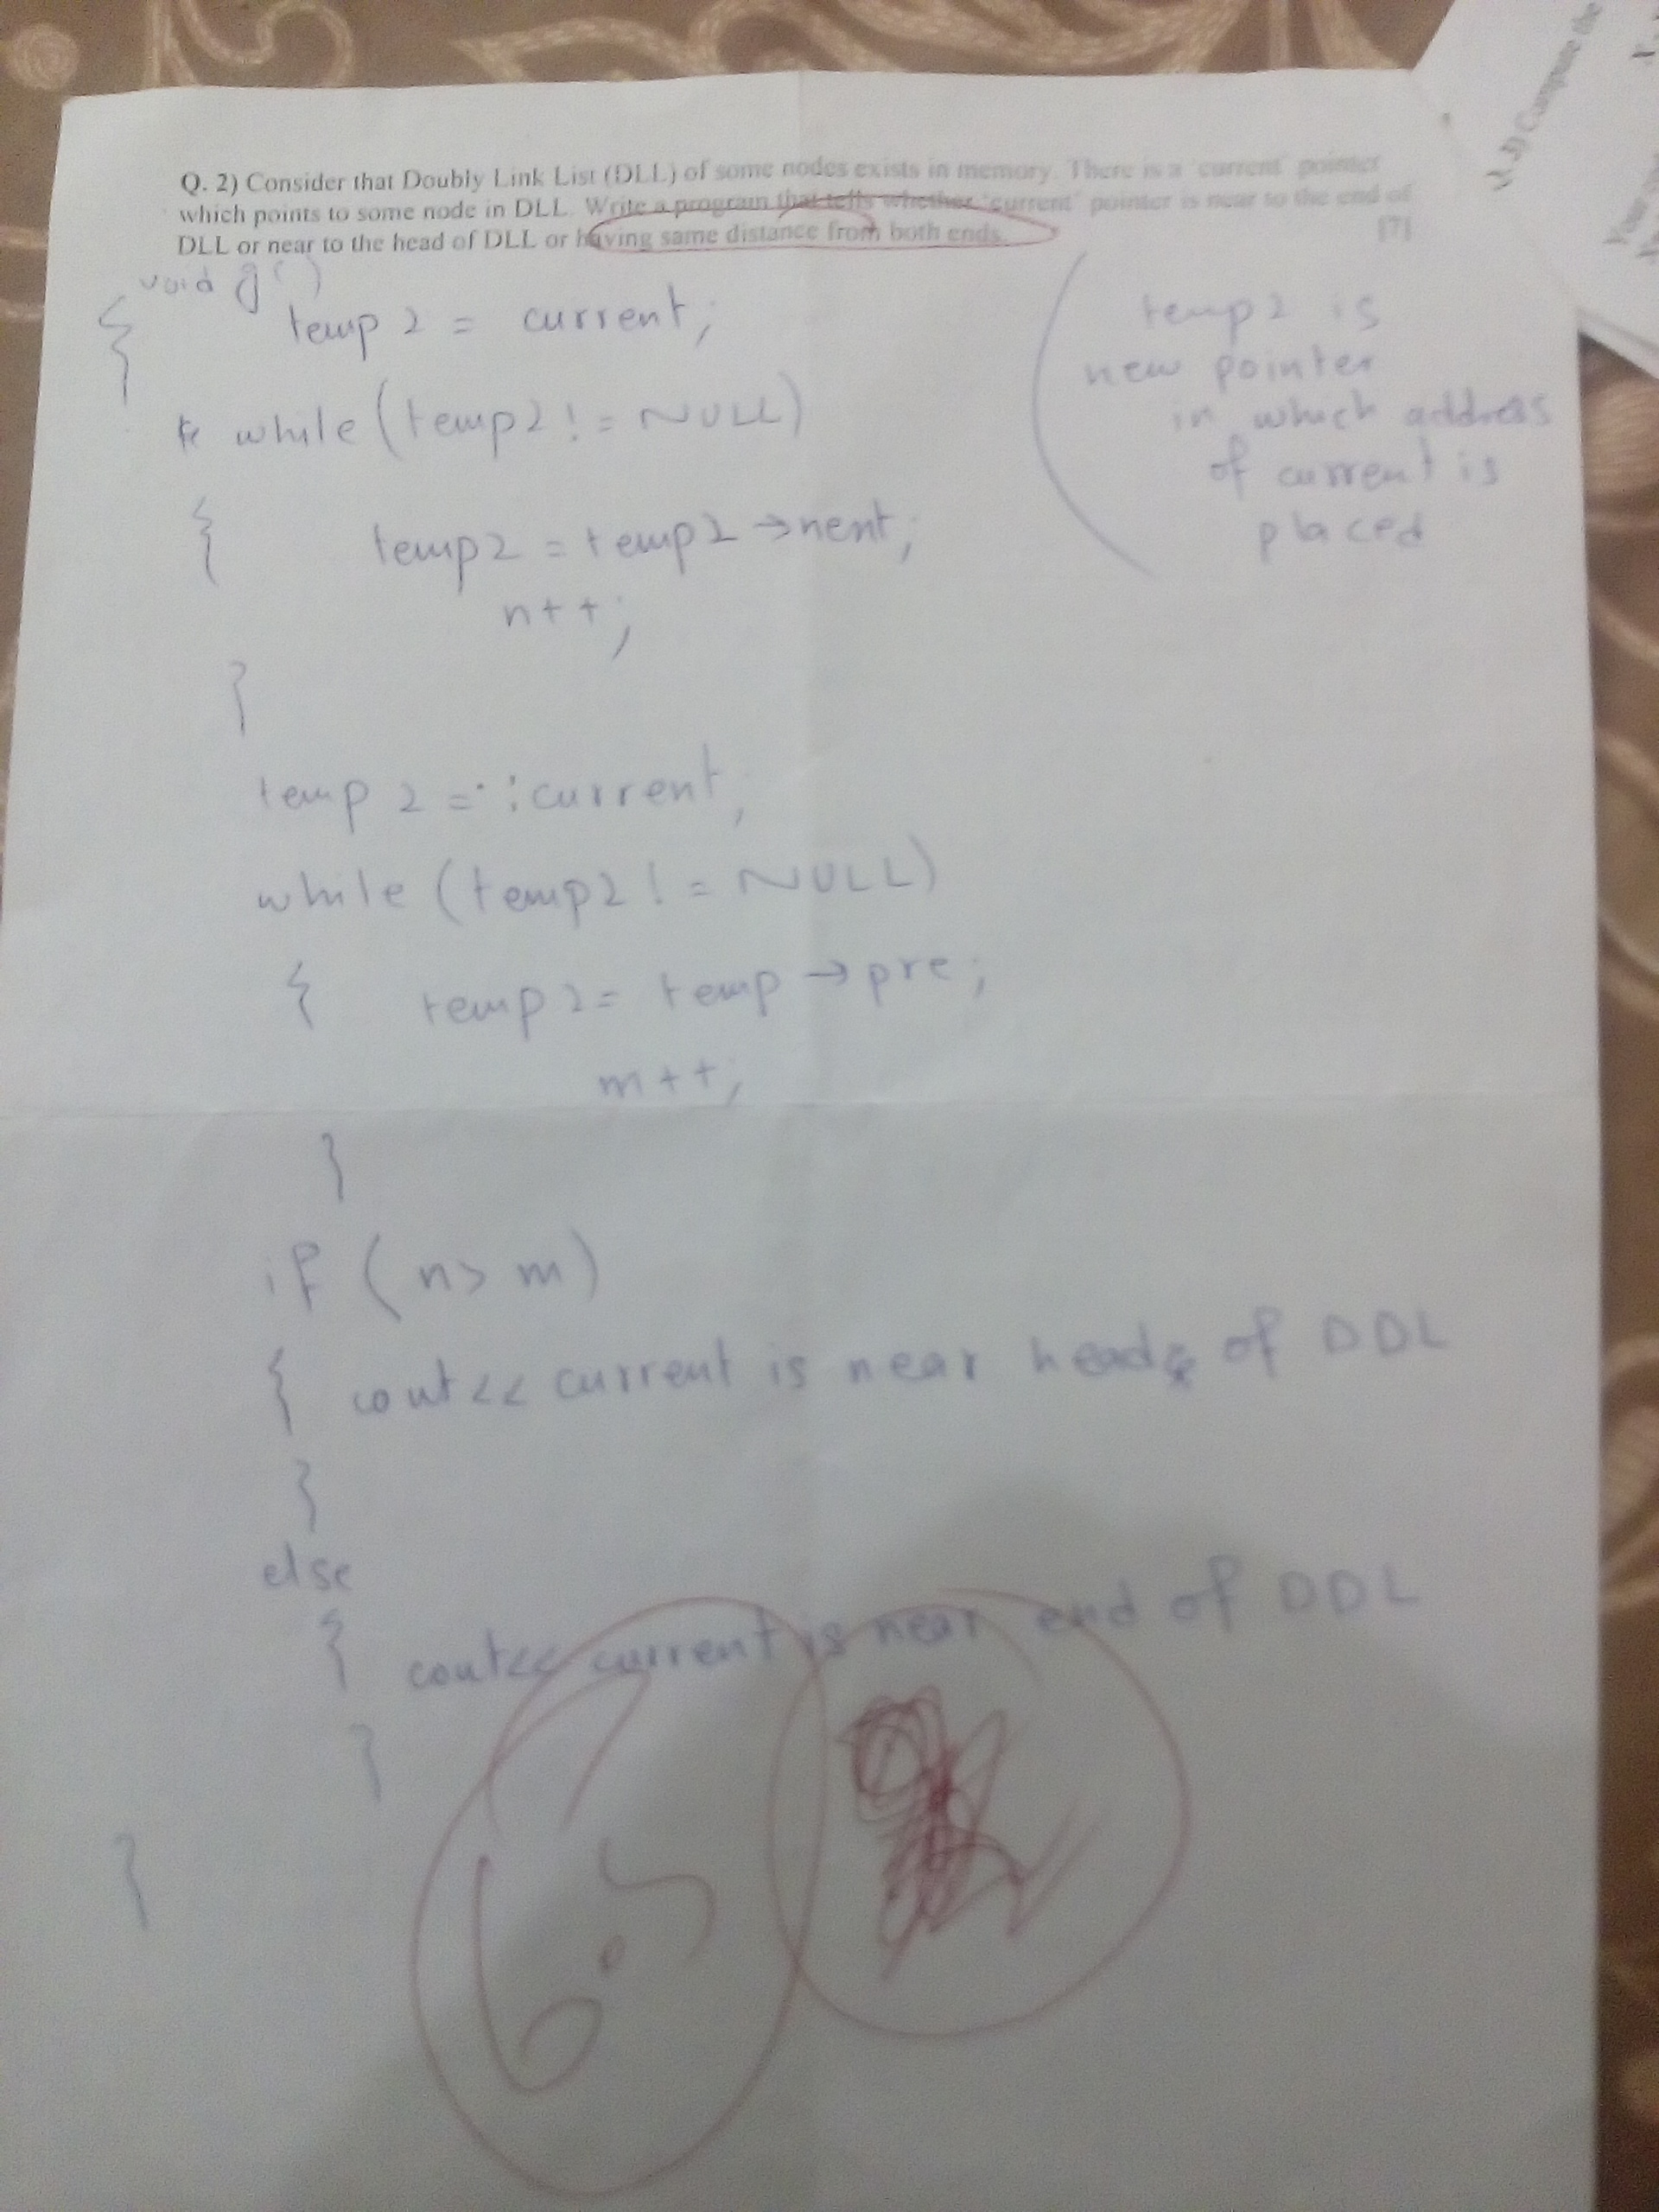 Q. 2) Consider that Doubly Link List (DLL) of some nodes exists in memory. There is a 'current' pointer
which points to some node in DLL. Write a program that tells whether 'current' pointer is near to the end of
DLL or near to the head of DLL or having same distance from both ends. [7]
void g()
{ temp2 = current;
while (temp2 != NULL)
{ temp2 = temp2 → nent;
n++;
}
temp2 = current;
while (temp2 != NULL)
{ temp2 = temp → pre;
m++;
}
if (n > m)
{ cout<< current is near head of DDL
}
else
{ cout<< current is near end of DDL
}
}
temp2 is
new pointer
in which address
of current is
placed
6.5
3) Compare the